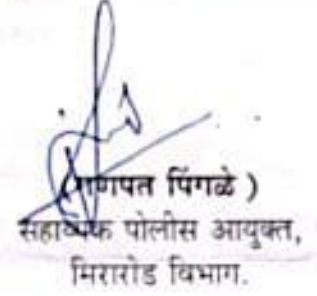 (गणपत पिंगळे )
सहाय्यक पोलीस आयुक्त,
मिरारोड विभाग.